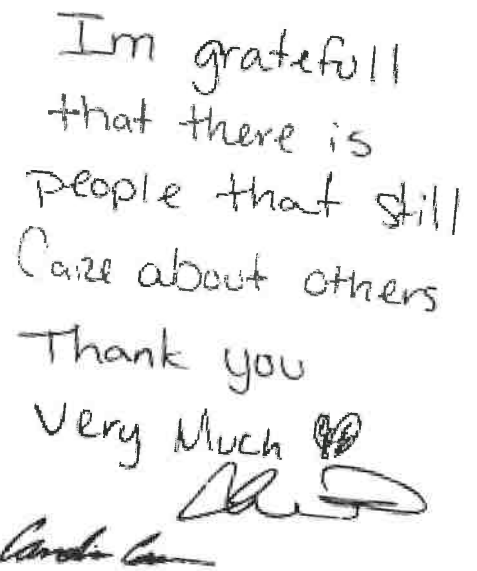 Im gratefull
that there is
people that still
Care about others
Thank you
Very Much